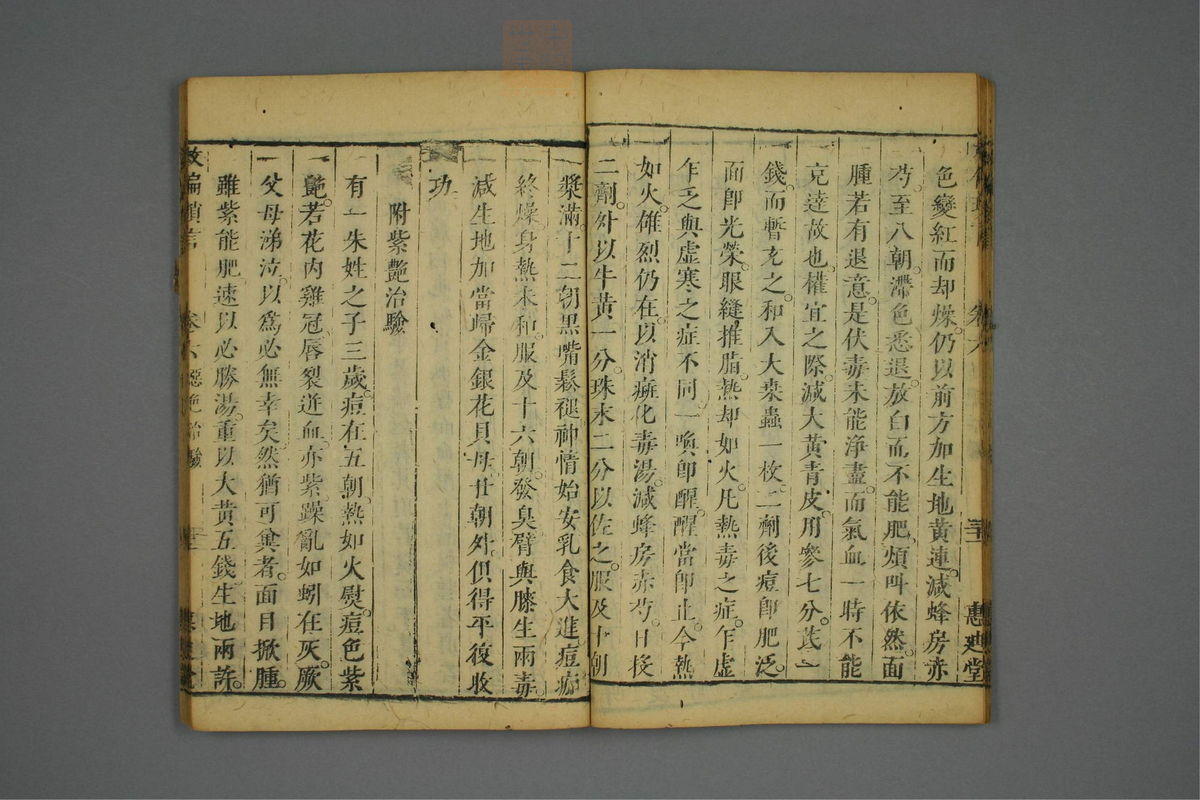 色變紅而却燥。仍以前方加生地黃連。減蜂房赤
芍。至八朝。滯色悉退。放白而不能肥。煩叫依然。面
腫若有退意。是伏毒未能淨盡。而氣血一時不能
克達故也。權宜之際。減大黃青皮。用參七分。芪一
錢。而暫充之。和入大桒蟲一枚。二劑後痘卽肥泛。
面卽光榮。眼縫推脂。熱却如火。凡熱毒之症。乍虛
乍乏。與虛寒之症不同。一喚卽醒。醒當卽止。今熱
如火。雄烈仍在。以消癍化毒湯。減蜂房赤芍。日投
二劑。外以牛黃一分。珠末二分以佐之。服及十朝
漿滿。十二朝黑嘴鬆褪。神情始安。乳食大進。痘痂
終燥。身熱未和。服及十六朝。發臭臂與膝生兩毒。
減生地加當歸金銀花貝母。廿朝外。俱得平復收
功
附紫艷治驗
有一朱姓之子三歲。痘在五朝。熱如火熨。痘色紫
艷。若花內雞冠。唇裂迸血。亦紫。躁亂如蚓在灰。厥
父母涕泣。以爲必無幸矣。然猶可兾者。面目掀腫。
雖紫能肥。速以必勝湯。重以大黃五錢。生地兩許。
救偏瑣言
卷六惡色治驗
卷六
惠迪堂